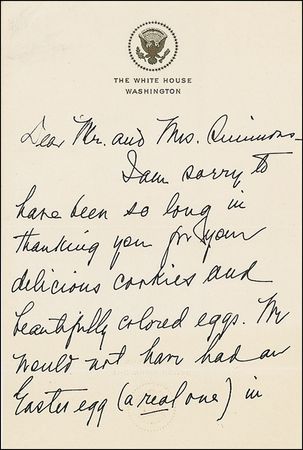 THE WHITE HOUSE
WASHINGTON
Dear Mr. and Mrs. Simmons-
I am sorry to
have been so long in
thanking you for your
delicious cookies and
beautifully colored eggs. We
would not have had an
Easter egg (a real one) in